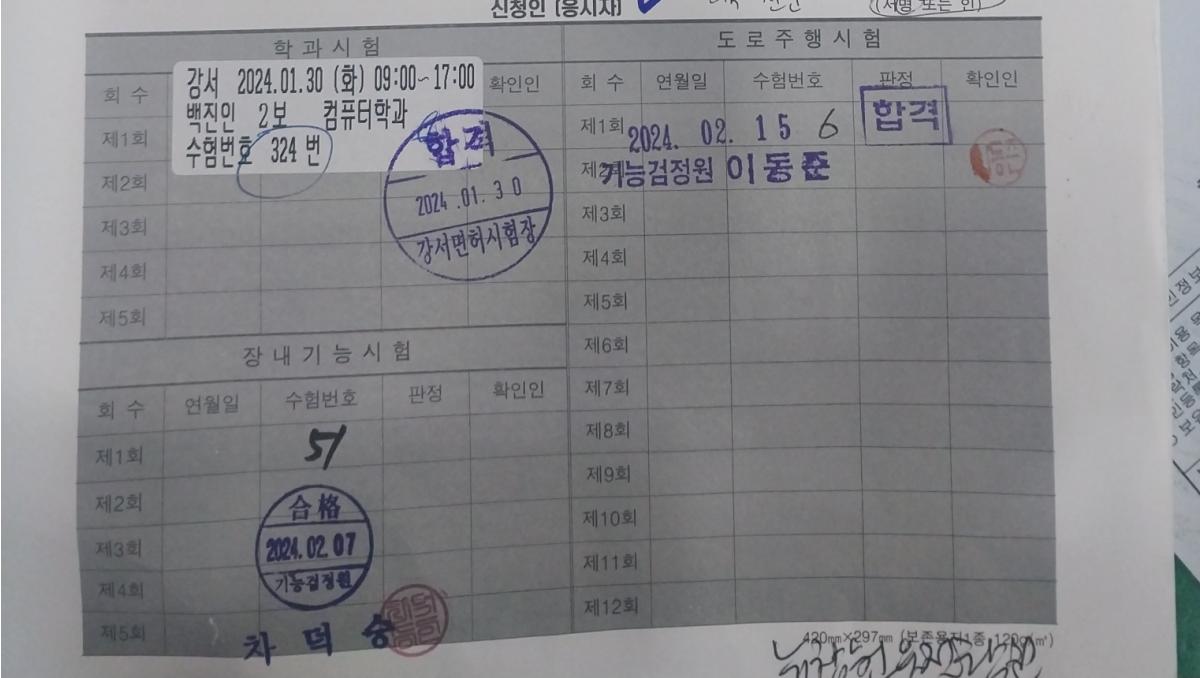 신청인 (응시자)
(서명 또는 인)
학 과 시 험
강서 2024.01.30 (화) 09:00~17:00
백진인 2보 컴퓨터학과
수험번호 324 번
회 수
확인인
제1회
제2회
제3회
제4회
제5회
합격
2024.01.30
강서면허시험장
장 내 기 능 시 험
회 수 연월일 수험번호 판정 확인인
제1회 51
제2회
제3회
제4회
제5회
合格
2024.02.07
기능검정원
차 덕 승
도 로 주 행 시 험
회 수 연월일 수험번호 판정 확인인
제1회 2024. 02. 15 6 합격
제2회 기능검정원 이동준
제3회
제4회
제5회
제6회
제7회
제8회
제9회
제10회
제11회
제12회
420㎜×297㎜ (보존용지1종 120g/㎡)